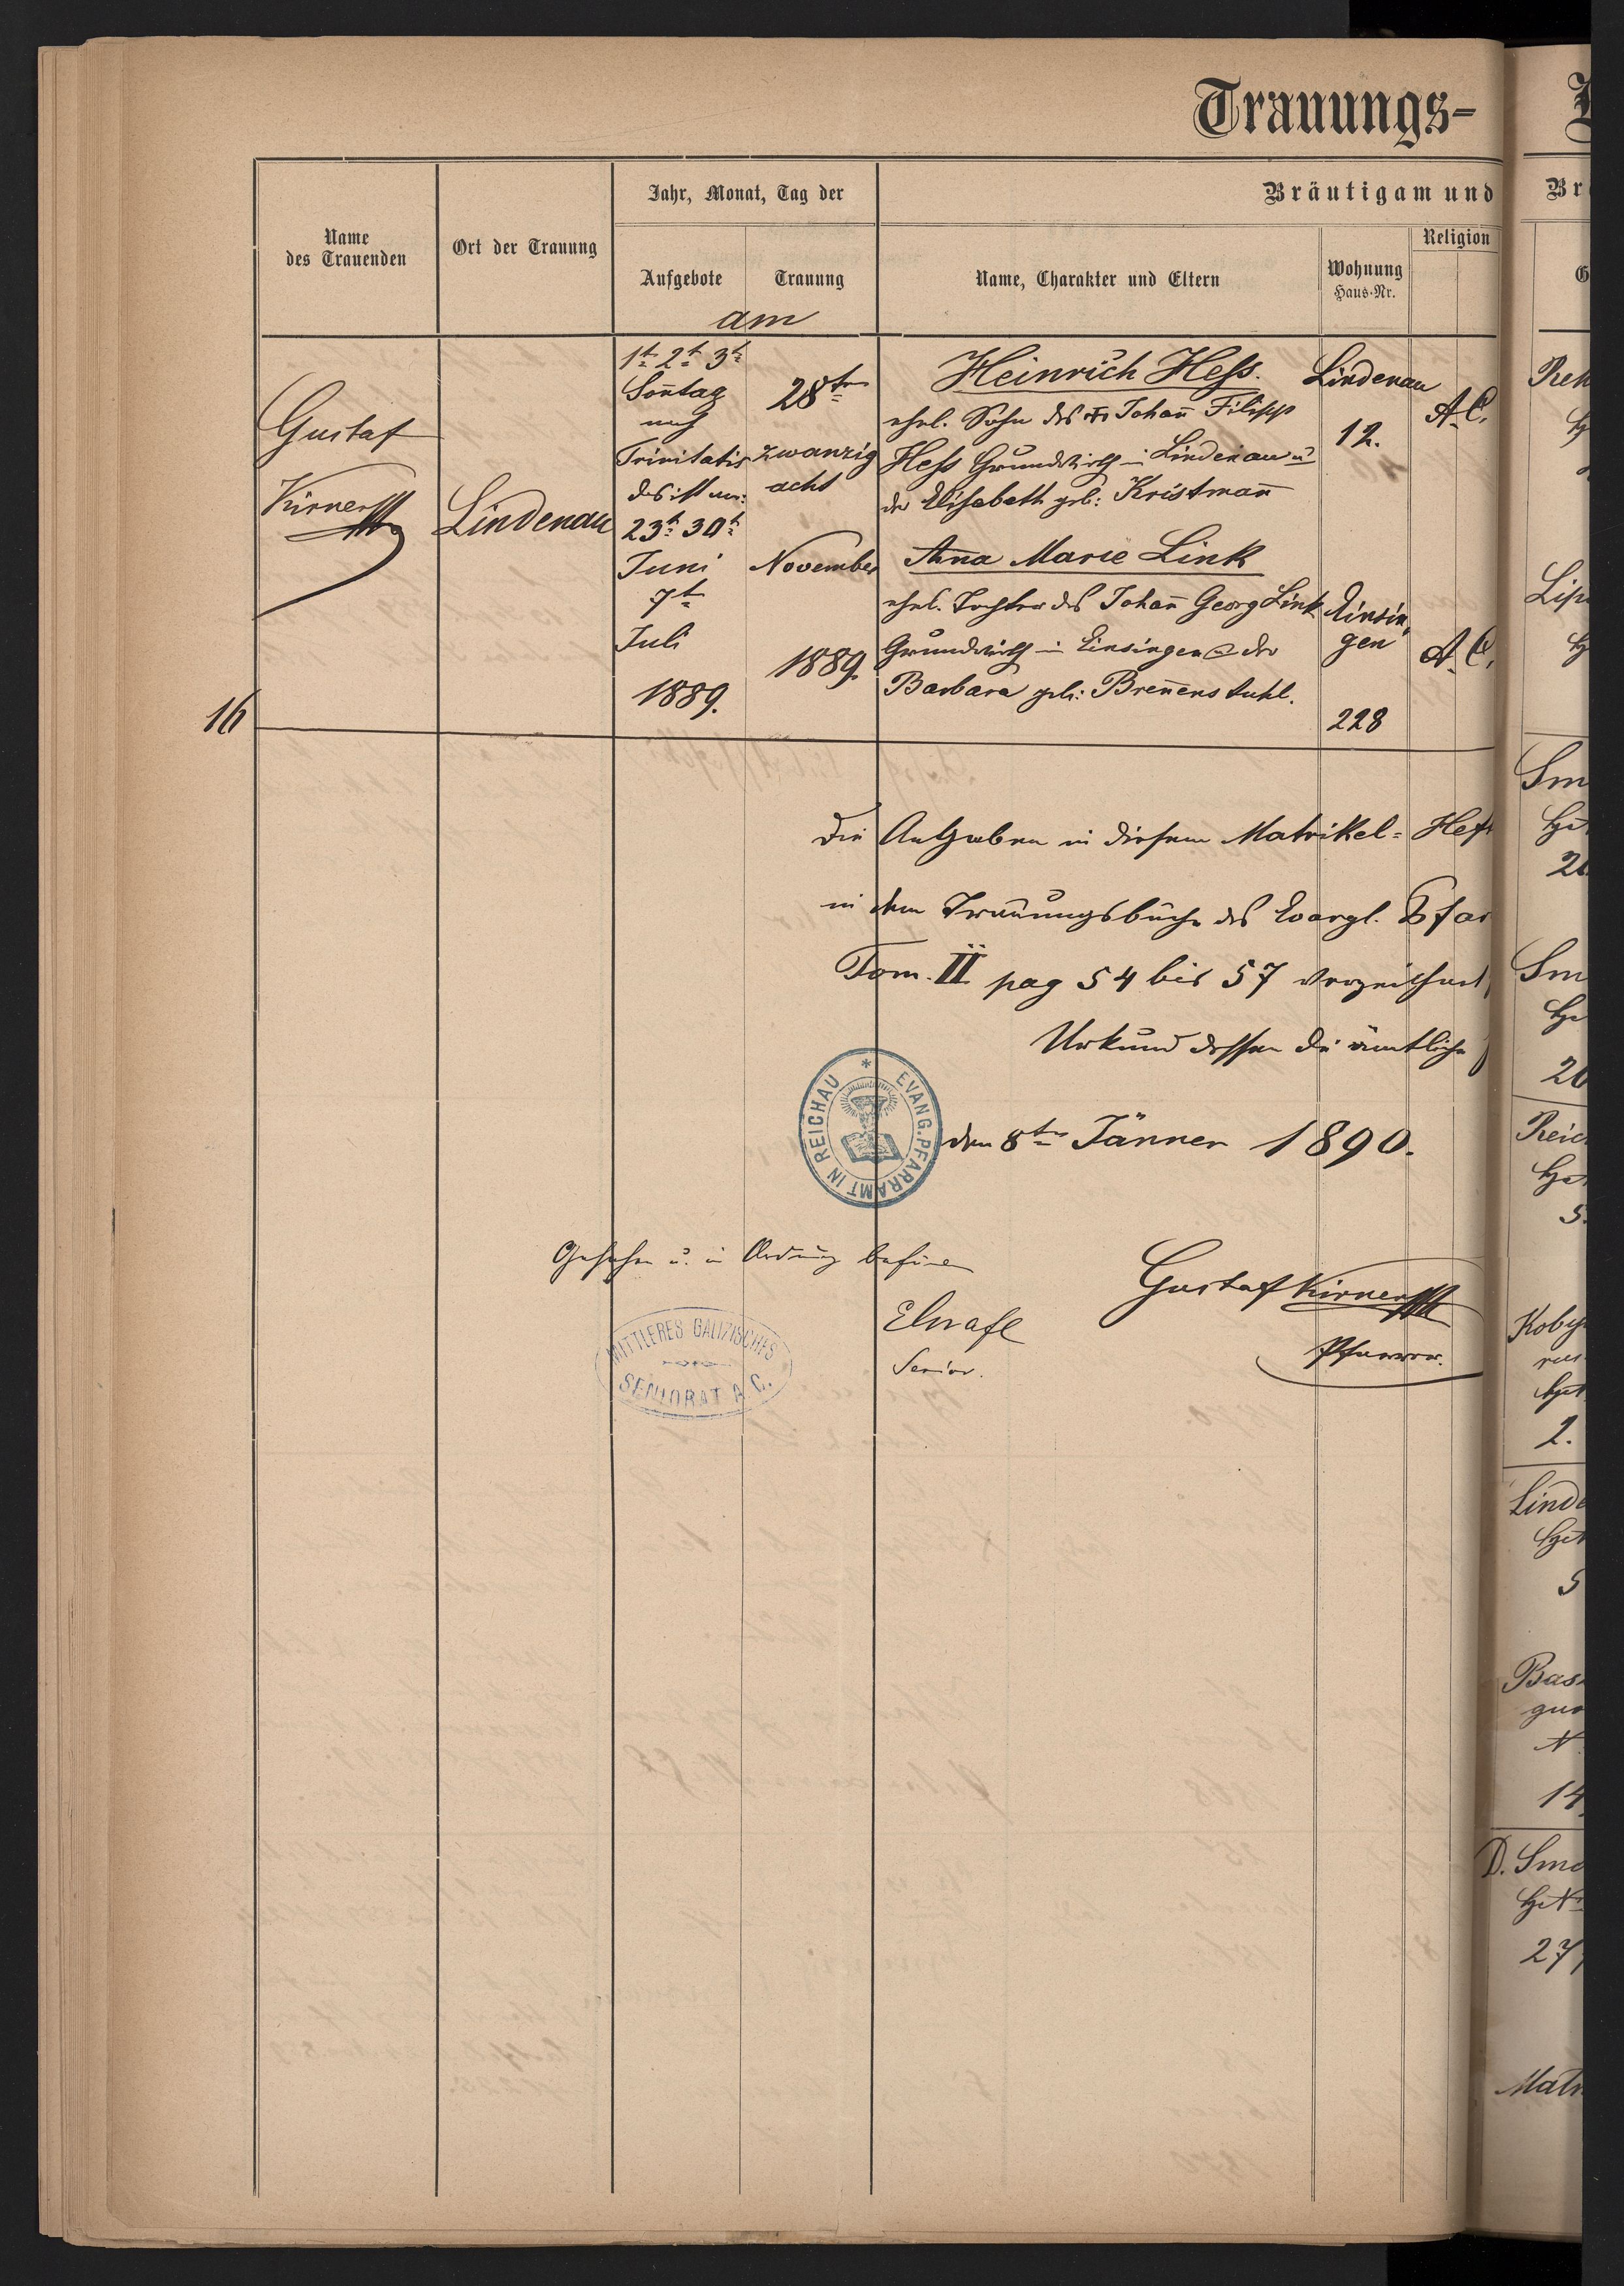 Trauungs-
Name des Trauenden
Ort der Trauung
Jahr, Monat, Tag der
Aufgebote
Trauung
am
Bräutigam und
Name, Charakter und Eltern
Wohnung
Haus-Nr.
Religion
16
Gustaf
Kirner
Lindenau
1t 2t 3t
Soñtag
nach
Trinitatis
23t 30t
Juni
7t
Juli
1889.
28ten
zwanzig
acht
November
1889.
Heinrich Hess.
ehel. Sohn des Johañ Filipp
Hess Grundwirth in Lindenau u
der Elisabeth geb: Kristmañ
Lindenau
12.
A.C.
Aña Marie Link
ehel. Tochter des Johañ Georg Link
Grundwirth in Einsingen der
Barbara geb: Breñenstuhl.
Einsin-
gen
228
A.C.
Die Angaben in diesem Matrikel-Heft
in dem Trauungsbuche des Evangl. Pfar
Tom. II pag 54 bis 57 verzeichnet
Urkund dessen die ämtliche
den 8ten Jänner 1890.
EVANG. PFARRAMT IN REICHAU
Gesehen u. in Ordnung befunden
Senior.
MITTLERES GALIZISCHES
SENIORAT A. C.
Gustaf Kirner
Pfarrer.
Br
Lip
Sm
Sm
20
Reic
5.
Koby
2.
Lind
5
Bas
14
D. Smo
27
Matr